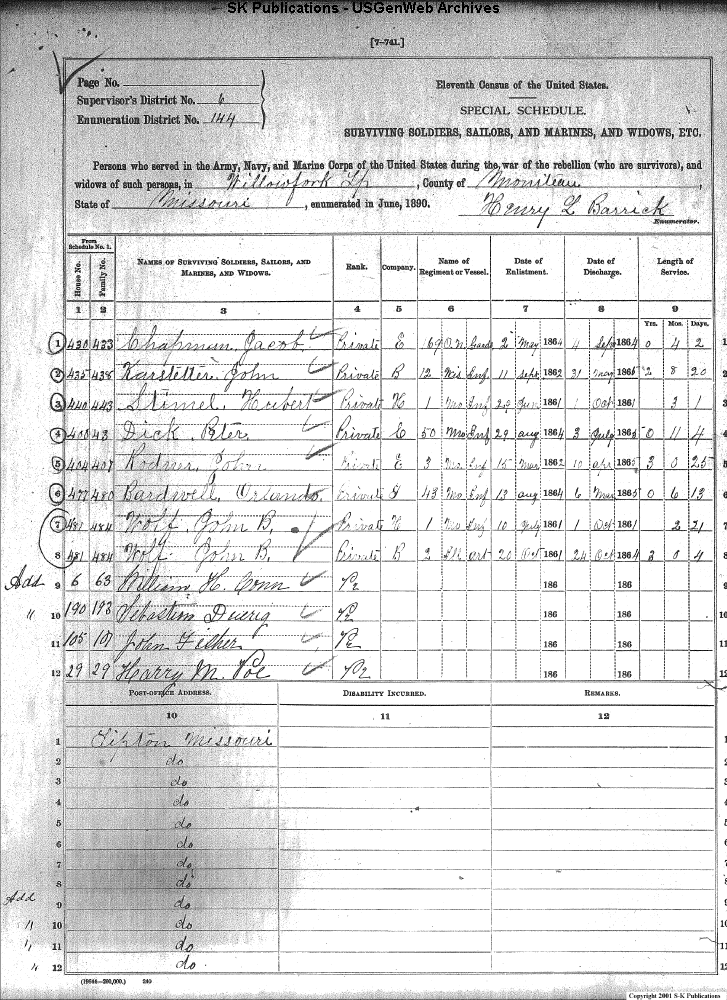 SK Publications - USGenWeb Archives
[7–741.]
Page No.
Supervisor's District No. 6
Enumeration District No. 144
Eleventh Census of the United States.
SPECIAL SCHEDULE.
SURVIVING SOLDIERS, SAILORS, AND MARINES, AND WIDOWS, ETC.
Persons who served in the Army, Navy, and Marine Corps of the United States during the war of the rebellion (who are survivors), and
widows of such persons, in Willowfork Tp, County of Moniteau,
State of Missouri, enumerated in June, 1890. Henry L Barrick
Enumerator.
From Schedule No. 1.
House No. Family No. NAMES OF SURVIVING SOLDIERS, SAILORS, AND MARINES, AND WIDOWS. Rank. Company. Name of Regiment or Vessel. Date of Enlistment. Date of Discharge. Length of Service.
1 2 3 4 5 6 7 8 9
Yrs. Mos. Days.
1 430 433 Chapman, Jacob Private E 169 O.N. Guards 2 May 1864 4 Sep 1864 0 4 2 1
2 435 438 Karstetter, John Private B 12 Wis Inf 11 Sept 1862 31 May 1865 2 8 20 2
3 440 443 Stimel, Hubert Private 1 Mo Inf 29 1861 1 Oct 1861 3 1 3
4 400 43 Dick, Peter Private E 50 Mo Inf 29 aug 1864 3 July 1865 0 11 4 4
5 404 407 John Private E 3 Mo Inf 15 Mar 1862 10 apr 1865 3 0 25 5
6 477 480 Bardwell, Orlando Private 43 Mo Inf 13 aug 1864 6 Mar 1865 0 6 13 6
7 481 484 Wolf, John B. Private 1 Mo Inf 10 July 1861 1 Oct 1861 2 21 7
8 481 484 Wolf, John B. Private B 2 Ill art 20 Oct 1861 24 Oct 1864 3 0 4 8
Add 9 6 63 William H. Conn 186 186 9
" 10 190 193 Sebastian Duerig 186 186 10
11 105 107 John Fisher 186 186 11
12 29 29 Harry M. Poe 186 186 12
POST-OFFICE ADDRESS. DISABILITY INCURRED. REMARKS.
10 11 12
1 Tipton Missouri 1
2 do 2
3 do 3
4 do 4
5 do 5
6 do 6
7 do 7
8 do 8
Add 9 do 9
" 10 do 10
" 11 do 11
" 12 do 12
(19544—200,000.) 240
Copyright 2001 S-K Publications